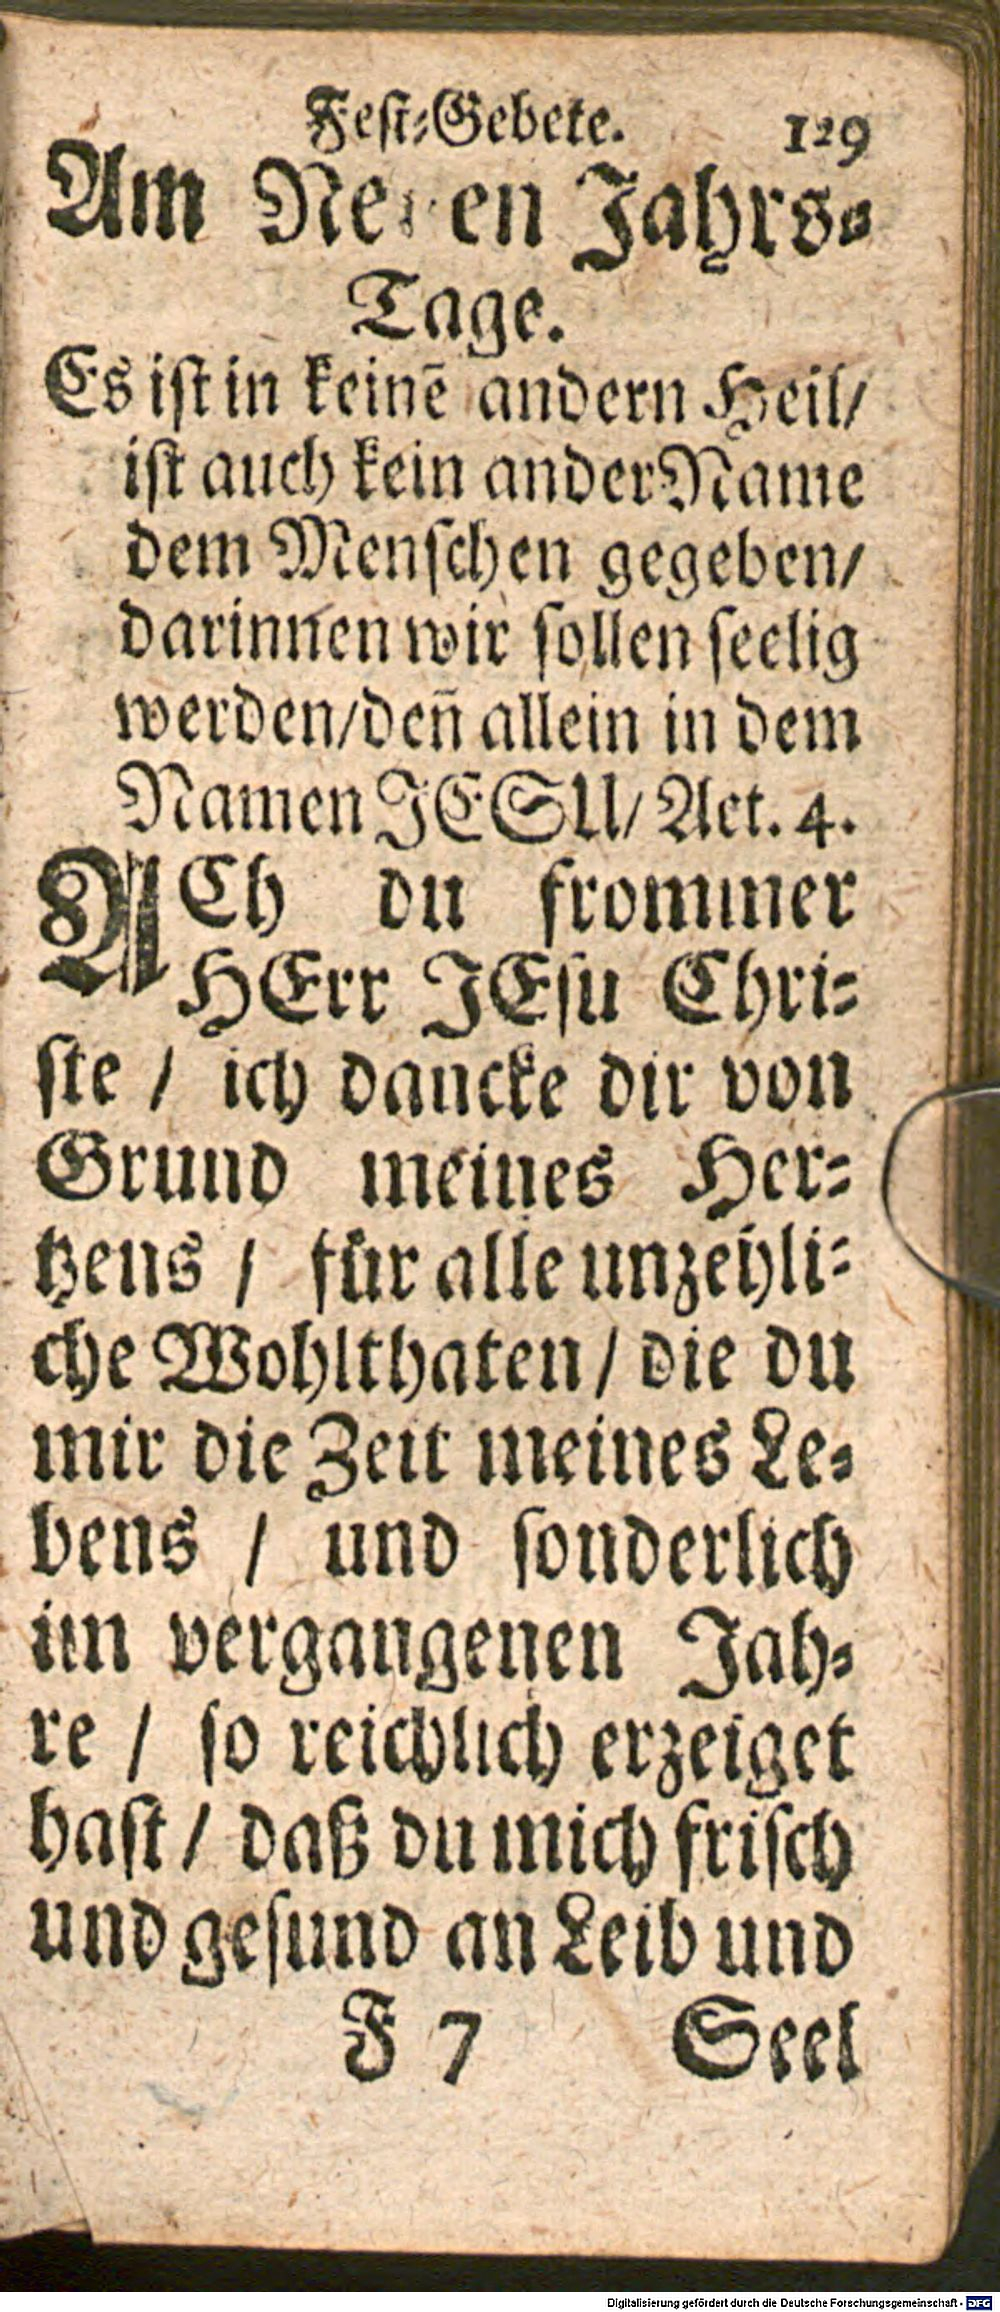 Fest-Gebete. 129
Am Neuen Jahrs-
Tage.
Es ist in keinē andern Heil/
ist auch kein ander Name
dem Menschen gegeben/
darinnen wir sollen seelig
werden/ deñ allein in dem
Namen JESU/ Act. 4.
ACh du frommer
HErr JEsu Chri-
ste / ich dancke dir von
Grund meines Her-
tzens / für alle unzehli-
che Wohlthaten / die du
mir die Zeit meines Le-
bens / und sonderlich
im vergangenen Jah-
re / so reichlich erzeiget
hast / daß du mich frisch
und gesund an Leib und
F 7 Seel
Digitalisierung gefördert durch die Deutsche Forschungsgemeinschaft - DFG